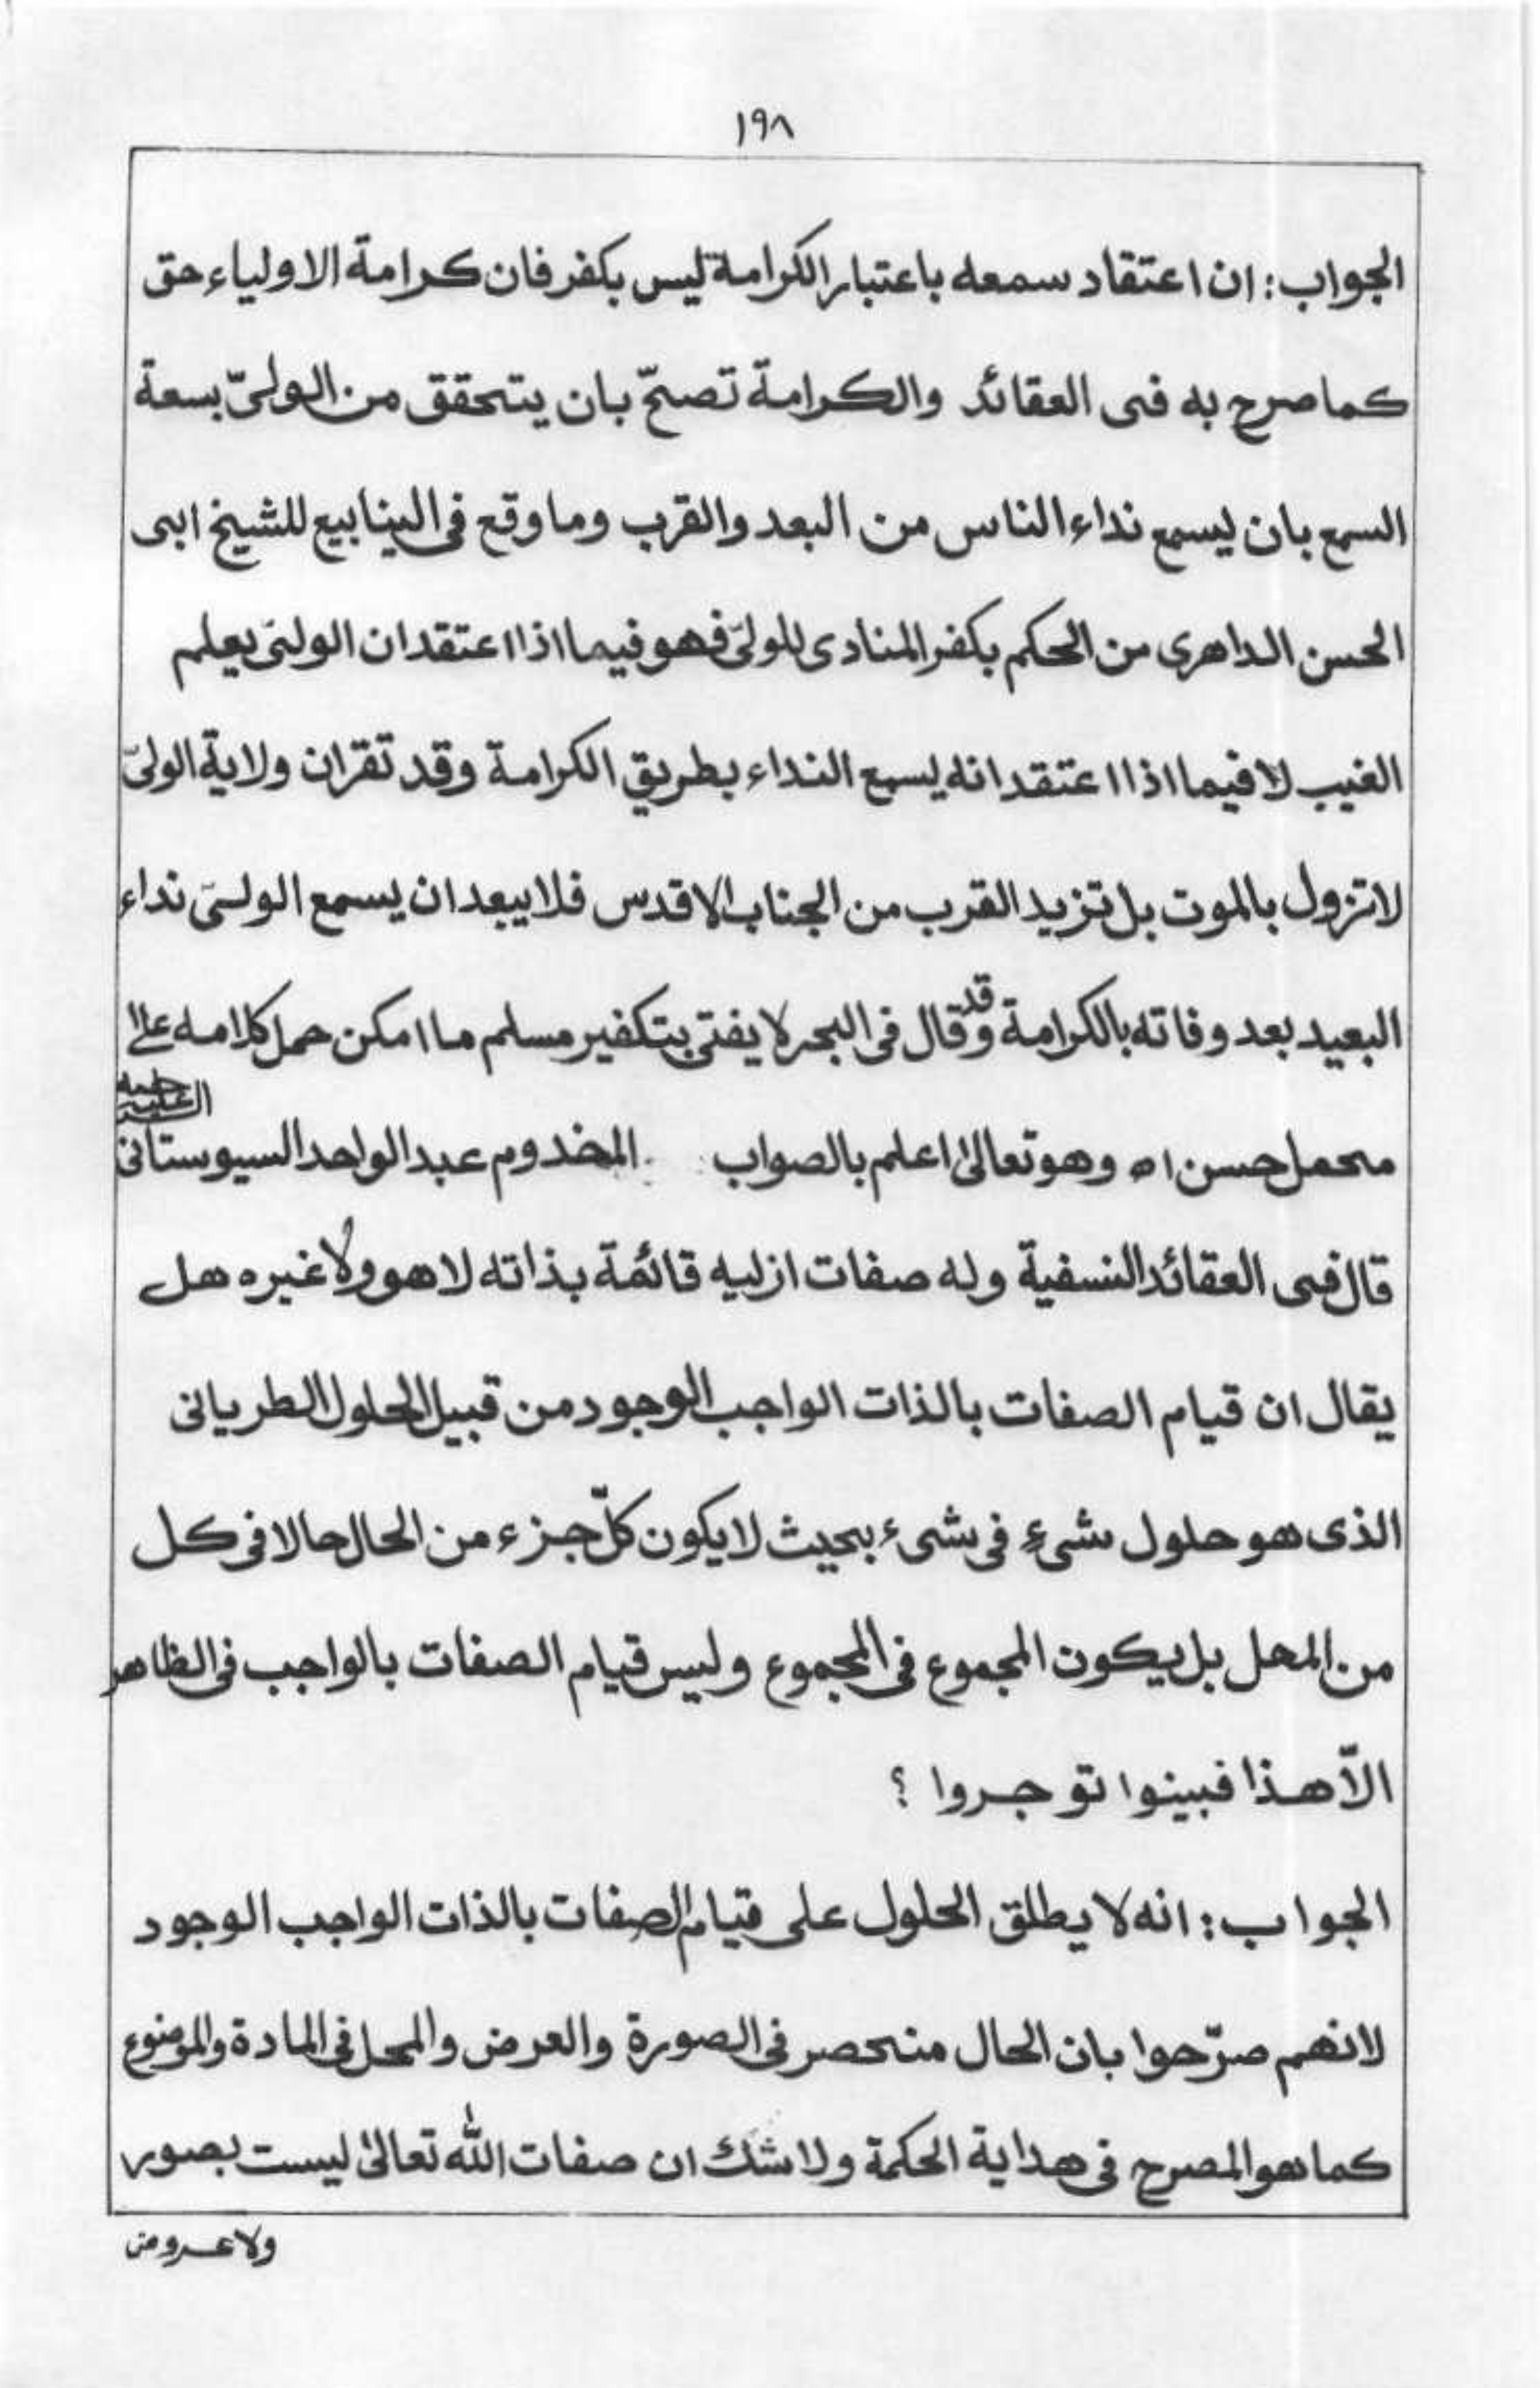 ١٩٨
الجواب: ان اعتقاد سمعه باعتبار الكرامة ليس بكفر فان كرامة الاولياء حق
كما صرح به فى العقائد والكرامة تصحّ بان يتحقق من الولىّ بسعة
السمع بان يسمع نداء الناس من البعد والقرب وما وقع فى الينابيع للشيخ ابى
الحسن الداهرى من الحكم بكفر المنادى للولىّ فهو فيما اذا اعتقد ان الولىّ يعلم
الغيب لا فيما اذا اعتقد انه يسمع النداء بطريق الكرامة وقد تقران ولاية الولىّ
لاتزول بالموت بل تزيد القرب من الجناب الاقدس فلا يبعد ان يسمع الولىّ نداء
البعيد بعد وفاته بالكرامة وقد قال فى البحر لا يفتى بتكفير مسلم ما امكن حمل كلامه على
محمل حسن اه وهو تعالىٰ اعلم بالصواب المخدوم عبد الواحد السيوستانى
قال فى العقائد النسفية وله صفات ازليه قائمة بذاته لا هو ولا غيره هل
يقال ان قيام الصفات بالذات الواجب الوجود من قبيل الحلول الطريانى
الذى هو حلول شىءٍ فى شىء بحيث لا يكون كلّ جزء من الحال حالا فى كل
من المحل بل يكون المجموع فى المجموع وليس قيام الصفات بالواجب فى الظاهر
الاّ هذا فبينوا توجروا ؟
الجواب: انه لا يطلق الحلول على قيام الصفات بالذات الواجب الوجود
لانهم صرّحوا بان الحال منحصر فى الصورة والعرض والمحل فى المادة والموضوع
كما هو المصرح فى هداية الحكمة ولا شك ان صفات الله تعالىٰ ليست بصور
ولا عروض